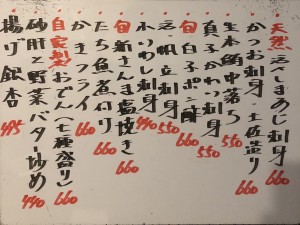 天然 〆さばあじ刺身
かつお刺身・土佐造り 660
生本角中落ち 550
真子かれい刺身 550
旬 白子ポン酢 660
活〆帆立刺身 550
ホリめし刺身 440
旬 新さんま塩焼き 660
たち魚煮付 660
かきフライ 660
自家製 おでん(七種盛り) 660
砂肝と野菜バター炒め 440
揚げ銀杏 495